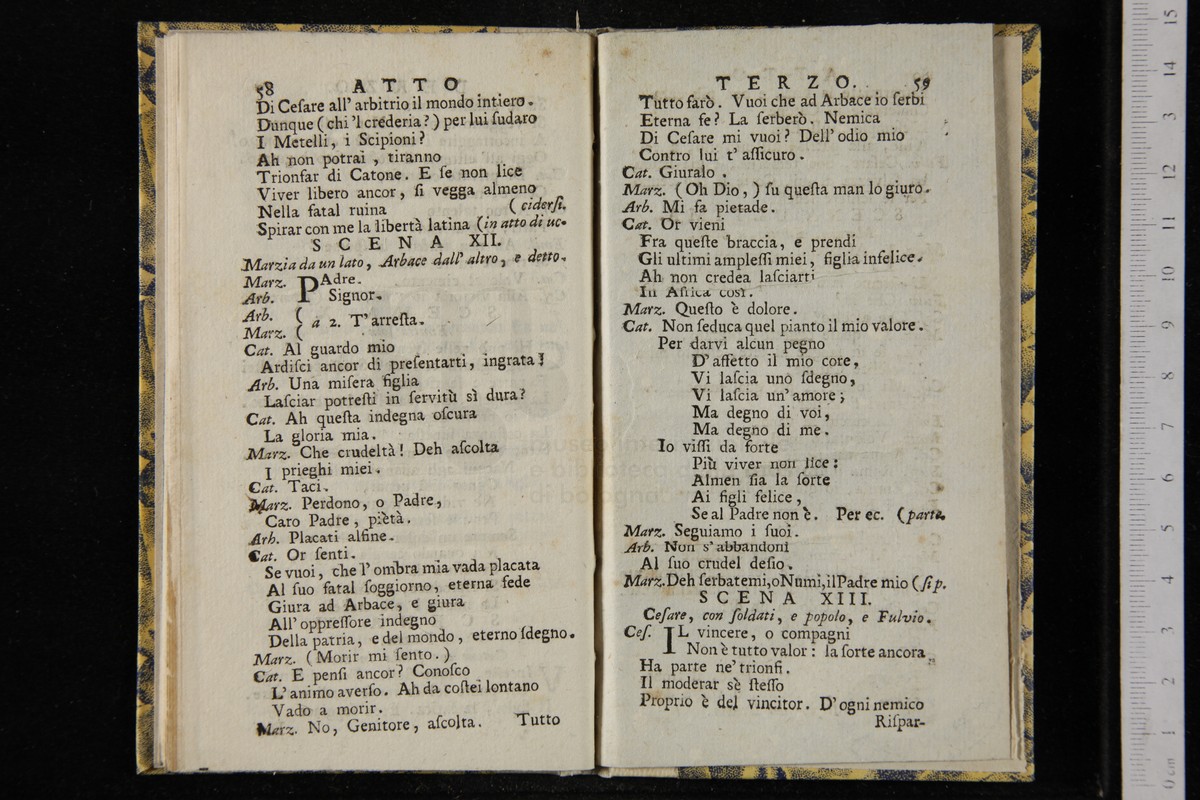 58 ATTO
Di Cesare all' arbitrio il mondo intiero.
Dunque (chi 'l crederia?) per lui sudaro
I Metelli, i Scipioni?
Ah non potrai, tiranno
Trionfar di Catone. E se non lice
Viver libero ancor, si vegga almeno
Nella fatal ruina ( ciderſi.
Spirar con me la libertà latina (in atto di uc-
SCENA XII.
Marzia da un lato, Arbace dall' altro, e detto.
Marz. PAdre.
Arb. Signor.
Arb. (
Marz. ( a 2. T' arreſta.
Cat. Al guardo mio
Ardiſci ancor di preſentarti, ingrata!
Arb. Una miſera figlia
Laſciar potreſti in ſervitù sì dura?
Cat. Ah queſta indegna oſcura
La gloria mia.
Marz. Che crudeltà! Deh aſcolta
I prieghi miei.
Cat. Taci.
Marz. Perdono, o Padre,
Caro Padre, pietà.
Arb. Placati alfine.
Cat. Or ſenti.
Se vuoi, che l' ombra mia vada placata
Al ſuo fatal ſoggiorno, eterna fede
Giura ad Arbace, e giura
All' oppreſſore indegno
Della patria, e del mondo, eterno ſdegno.
Marz. (Morir mi ſento.)
Cat. E penſi ancor? Conoſco
L' animo averſo. Ah da coſtei lontano
Vado a morir.
Marz. No, Genitore, aſcolta. Tutto
TERZO. 59
Tutto farò. Vuoi che ad Arbace io ſerbi
Eterna fe? La ſerberò. Nemica
Di Ceſare mi vuoi? Dell' odio mio
Contro lui t' aſſicuro.
Cat. Giuralo.
Marz. (Oh Dio,) ſu queſta man lo giuro.
Arb. Mi fa pietade.
Cat. Or vieni
Fra queſte braccia, e prendi
Gli ultimi ampleſſi miei, figlia infelice.
Ah non credea laſciarti
In Affrica così.
Marz. Queſto è dolore.
Cat. Non ſeduca quel pianto il mio valore.
Per darvi alcun pegno
D' affetto il mio core,
Vi laſcia uno ſdegno,
Vi laſcia un' amore;
Ma degno di voi,
Ma degno di me.
Io viſſi da forte
Più viver non lice:
Almen ſia la ſorte
Ai figli felice,
Se al Padre non è. Per ec. (parte.
Marz. Seguiamo i ſuoi.
Arb. Non s' abbandoni
Al ſuo crudel deſio.
Marz. Deh ſerbatemi, o Numi, il Padre mio (ſi p.
SCENA XIII.
Ceſare, con ſoldati, e popolo, e Fulvio.
Ceſ. IL vincere, o compagni
Non è tutto valor: la ſorte ancora
Ha parte ne' trionfi.
Il moderar sè ſteſſo
Proprio è del vincitor. D' ogni nemico
Riſpar-